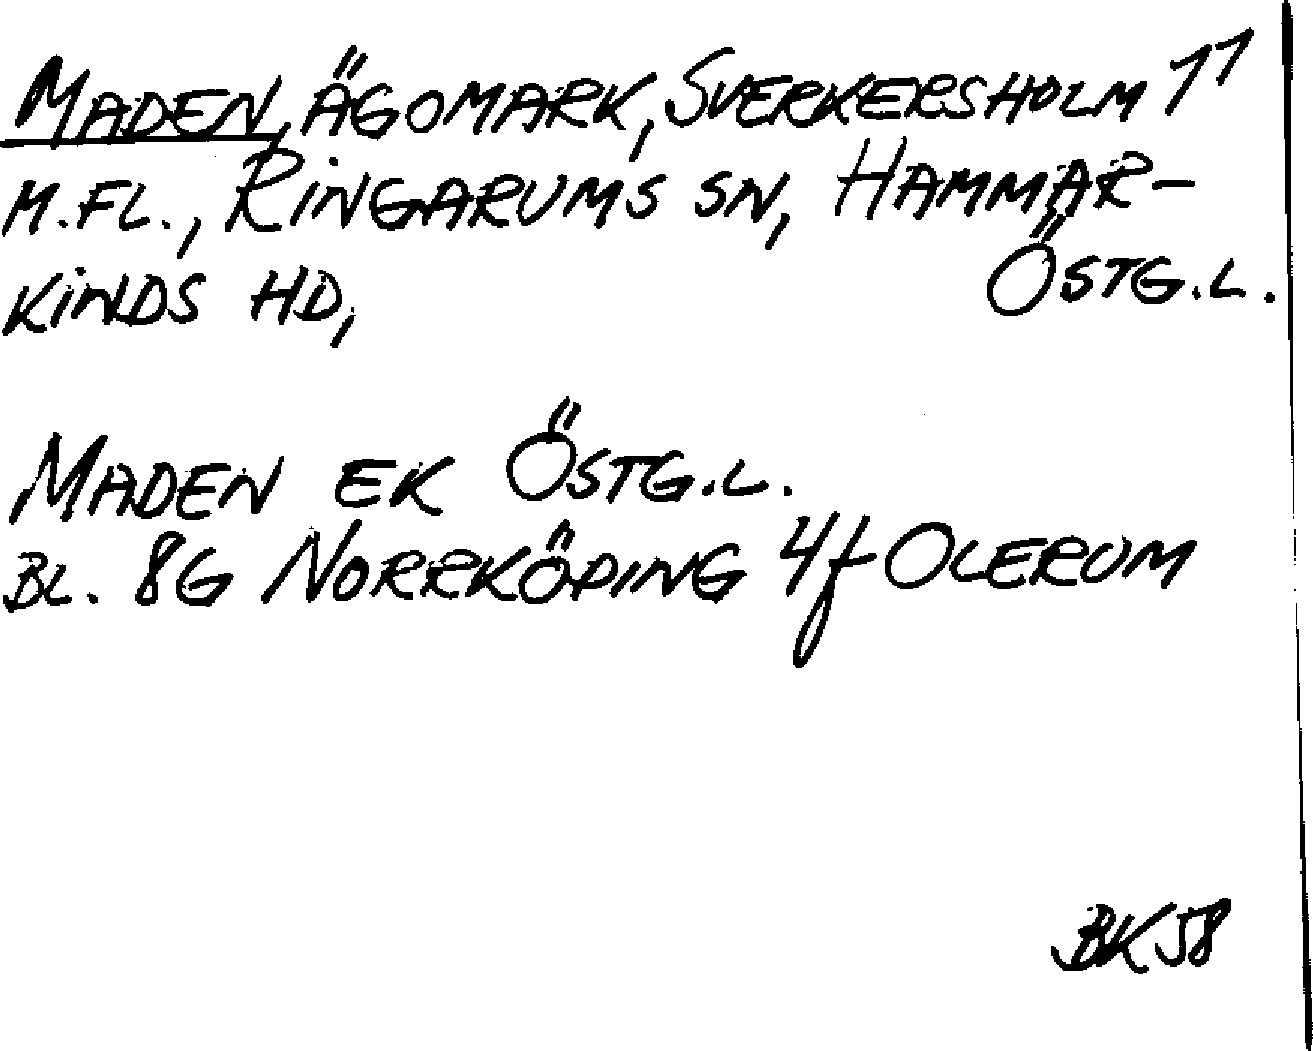 MADEN, ÄGOMARK, SVERKERSHOLM 1¹
M.FL., RINGARUMS SN, HAMMAR-
KINDS HD, ÖSTG.L.
MADEN EK ÖSTG.L.
BL. 8G NORRKÖPING 4f OLERUM
BK58